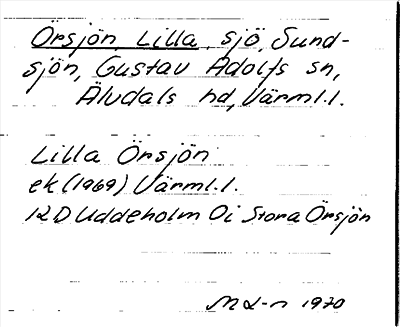 Örsjön, Lilla, sjö, Sund-
sjön, Gustav Adolfs sn,
Älvdals hd, Värml.l.
Lilla Örsjön
ek (1969) Värml.l.
12D Uddeholm Oi Stora Örsjön
1970